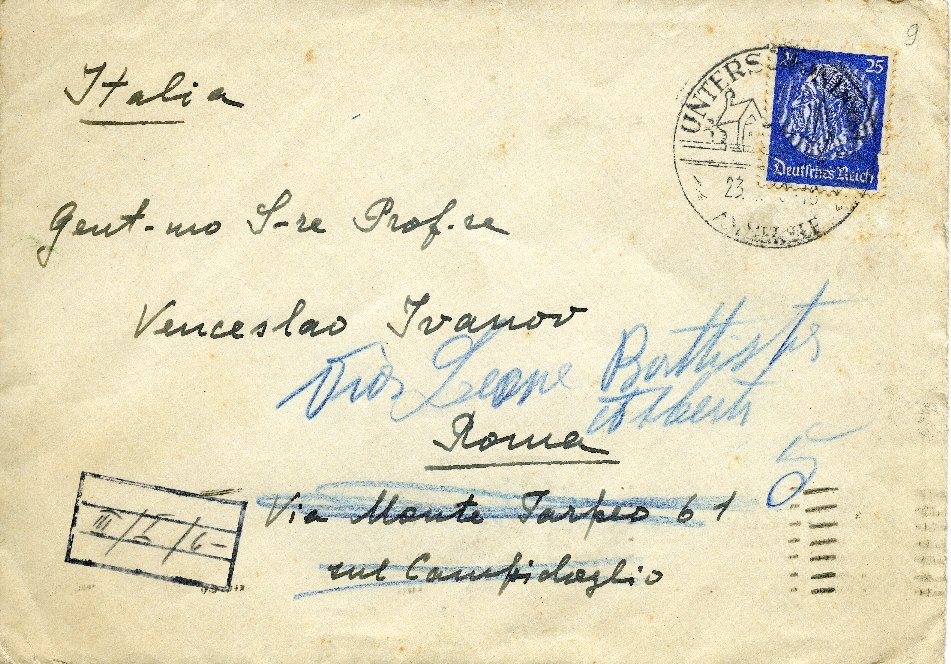 9
25
Deutsches Reich
UNTERS
23.
Italia
Gent-mo S-re Prof-re
Venceslao Ivanov
Via Leone Battista
Alberti
5
Roma
Via Monte Tarpeo 61
sul Campidoglio
III/I/6-